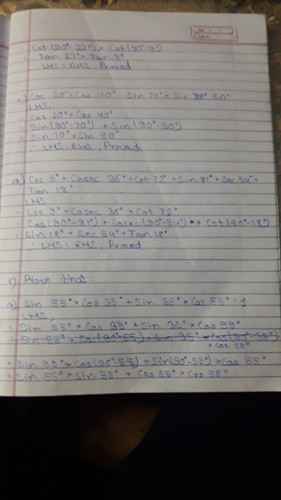 Cot (90°-27°) × Cot (90°-9°)
= Tan 27° × Tan 9°
∴ LHS = RHS, Proved
Cos 20° × Cos 40° = Sin 70° × Sin 50°
LHS
Cos 20° × Cos 40°
= Sin(90°-70°) × Sin(90°-50°)
= Sin 70° × Sin 50°
∴ LHS = RHS, Proved
Cos 9° + Cosec 36° + Cot 72° = Sin 81° + Sec 54° +
Tan 18°
LHS
= Cos 9° + Cosec 36° + Cot 72°
= Cos (90°-81°) + Cosec (90°-54°) + Cot (90°-18°)
= Sin 18° + Sec 54° + Tan 18°
∴ LHS = RHS, Proved
Prove that:
a) Sin 55° × Cos 35° + Sin 35° × Cos 55° = 1
LHS,
= Sin 55° × Cos 35° + Sin 35° × Cos 55°
× Cos 55°
= Sin 55° × Cos (90°-55) + Sin(90°-55°) × Cos 55°
= Sin 55° × Sin 55° + Cos 55° × Cos 55°